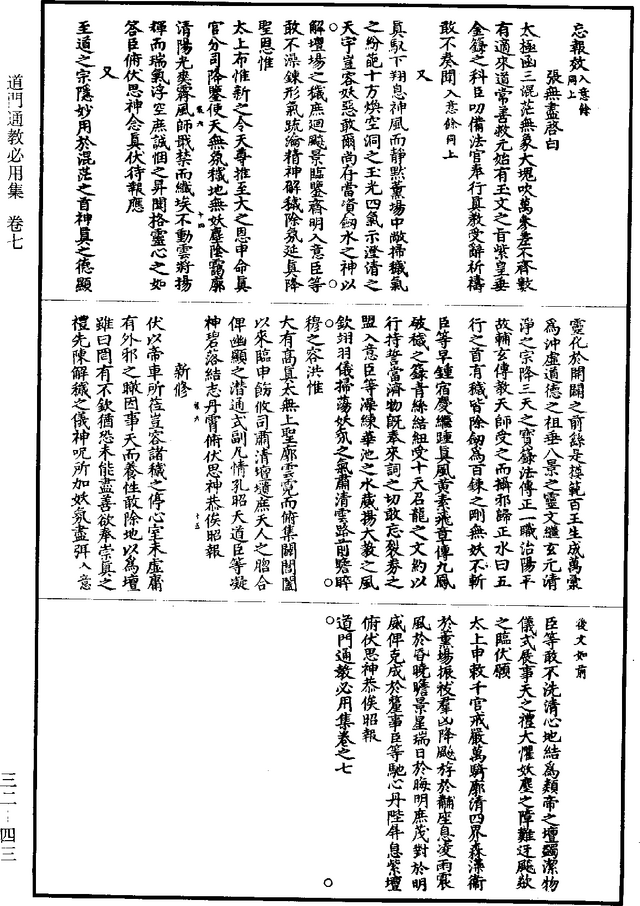 忘報效入意餘同上
張無盡啓白
太極函三混茫無象大塊吹萬參差不齊數
有適來道常善救元始有玉文之旨紫皇垂
金籙之科臣叨備法官奉行真教受辭祈禱
敢不奏聞入意餘同上
又
真馭下翔息神風而靜默薰場中敞掃穢氣
之紛葩十方煥空洞之玉光四氣示澄清之
天宇豈容妖惡敢爾尚存當資劒水之神以
解壇場之穢庶迴飈景貼鑒齋明入意臣等
敢不澡鍊形氣疏瀹精神解穢除氛延真降
聖恩惟
太上布惟新之令天尊推至大之恩申命真
官分司降鑒使天無氛穢地無妖塵陰靄廓
清陽光奕霽風師戢禁而纖埃不動雲將揚
輝而瑞氣浮空庶誠悃之昇聞格靈心之如
答臣俯伏思神念真伏待報應
又
至道之宗隱妙用於混茫之首神真之德顯
靈化於開闢之前繇是模範百王生成萬彙
為沖虛道德之祖垂八景之靈文繼玄元清
淨之宗降三天之寶籙法傳正一職治陽平
故輔玄傳教天師受之而攝邪歸正水曰五
行之首有穢皆除劒為百鍊之剛無妖不斬
臣等早鍾宿慶繼踵真風黃素飛章傳九鳳
破穢之籙青絲結紐受十天召龍之文約以
行持誓當濟物既奉來詞之切敢忘裂券之
盟入意臣等澡練華池之水藏揚大教之風
欽翊羽儀掃蕩妖氛之氣肅清雲路前瞻睟
穆之容洪惟
大有高真太無上聖廓雲霓而俯集闢閶闔
以來臨申飭攸司肅清壇墠庶天人之𦚾合
俾幽顯之潛通式副凡情孔昭大道臣等凝
神碧落結志丹霄俯伏思神恭俟昭報
新修
伏以帝車所莅豈容諸穢之停心室未虛庸
有外邪之瞰因事天而養性敢除地以為壇
雖曰罔有不欽猶恐未能盡善欲奉崇真之
禮先陳解穢之儀神呪所加妖氛盡弭入意
後文如前
臣等敢不洗清心地結為類帝之壇蠲潔物
儀式展事天之禮大懼妖塵之障難迂飈欻
之臨伏願
太上申敕千官戒嚴萬騎廓清四界森藻衛
於薰場振祓羣凶降飈斿於黼座息凌雨震
風於昏晚瞻景星瑞日於晦明庶茂對於明
威俾克成於釐事臣等馳心丹陛屏息紫壇
俯伏思神恭俟昭報
道門通教必用集卷之七
道門通教必用集 卷七
三二—四三